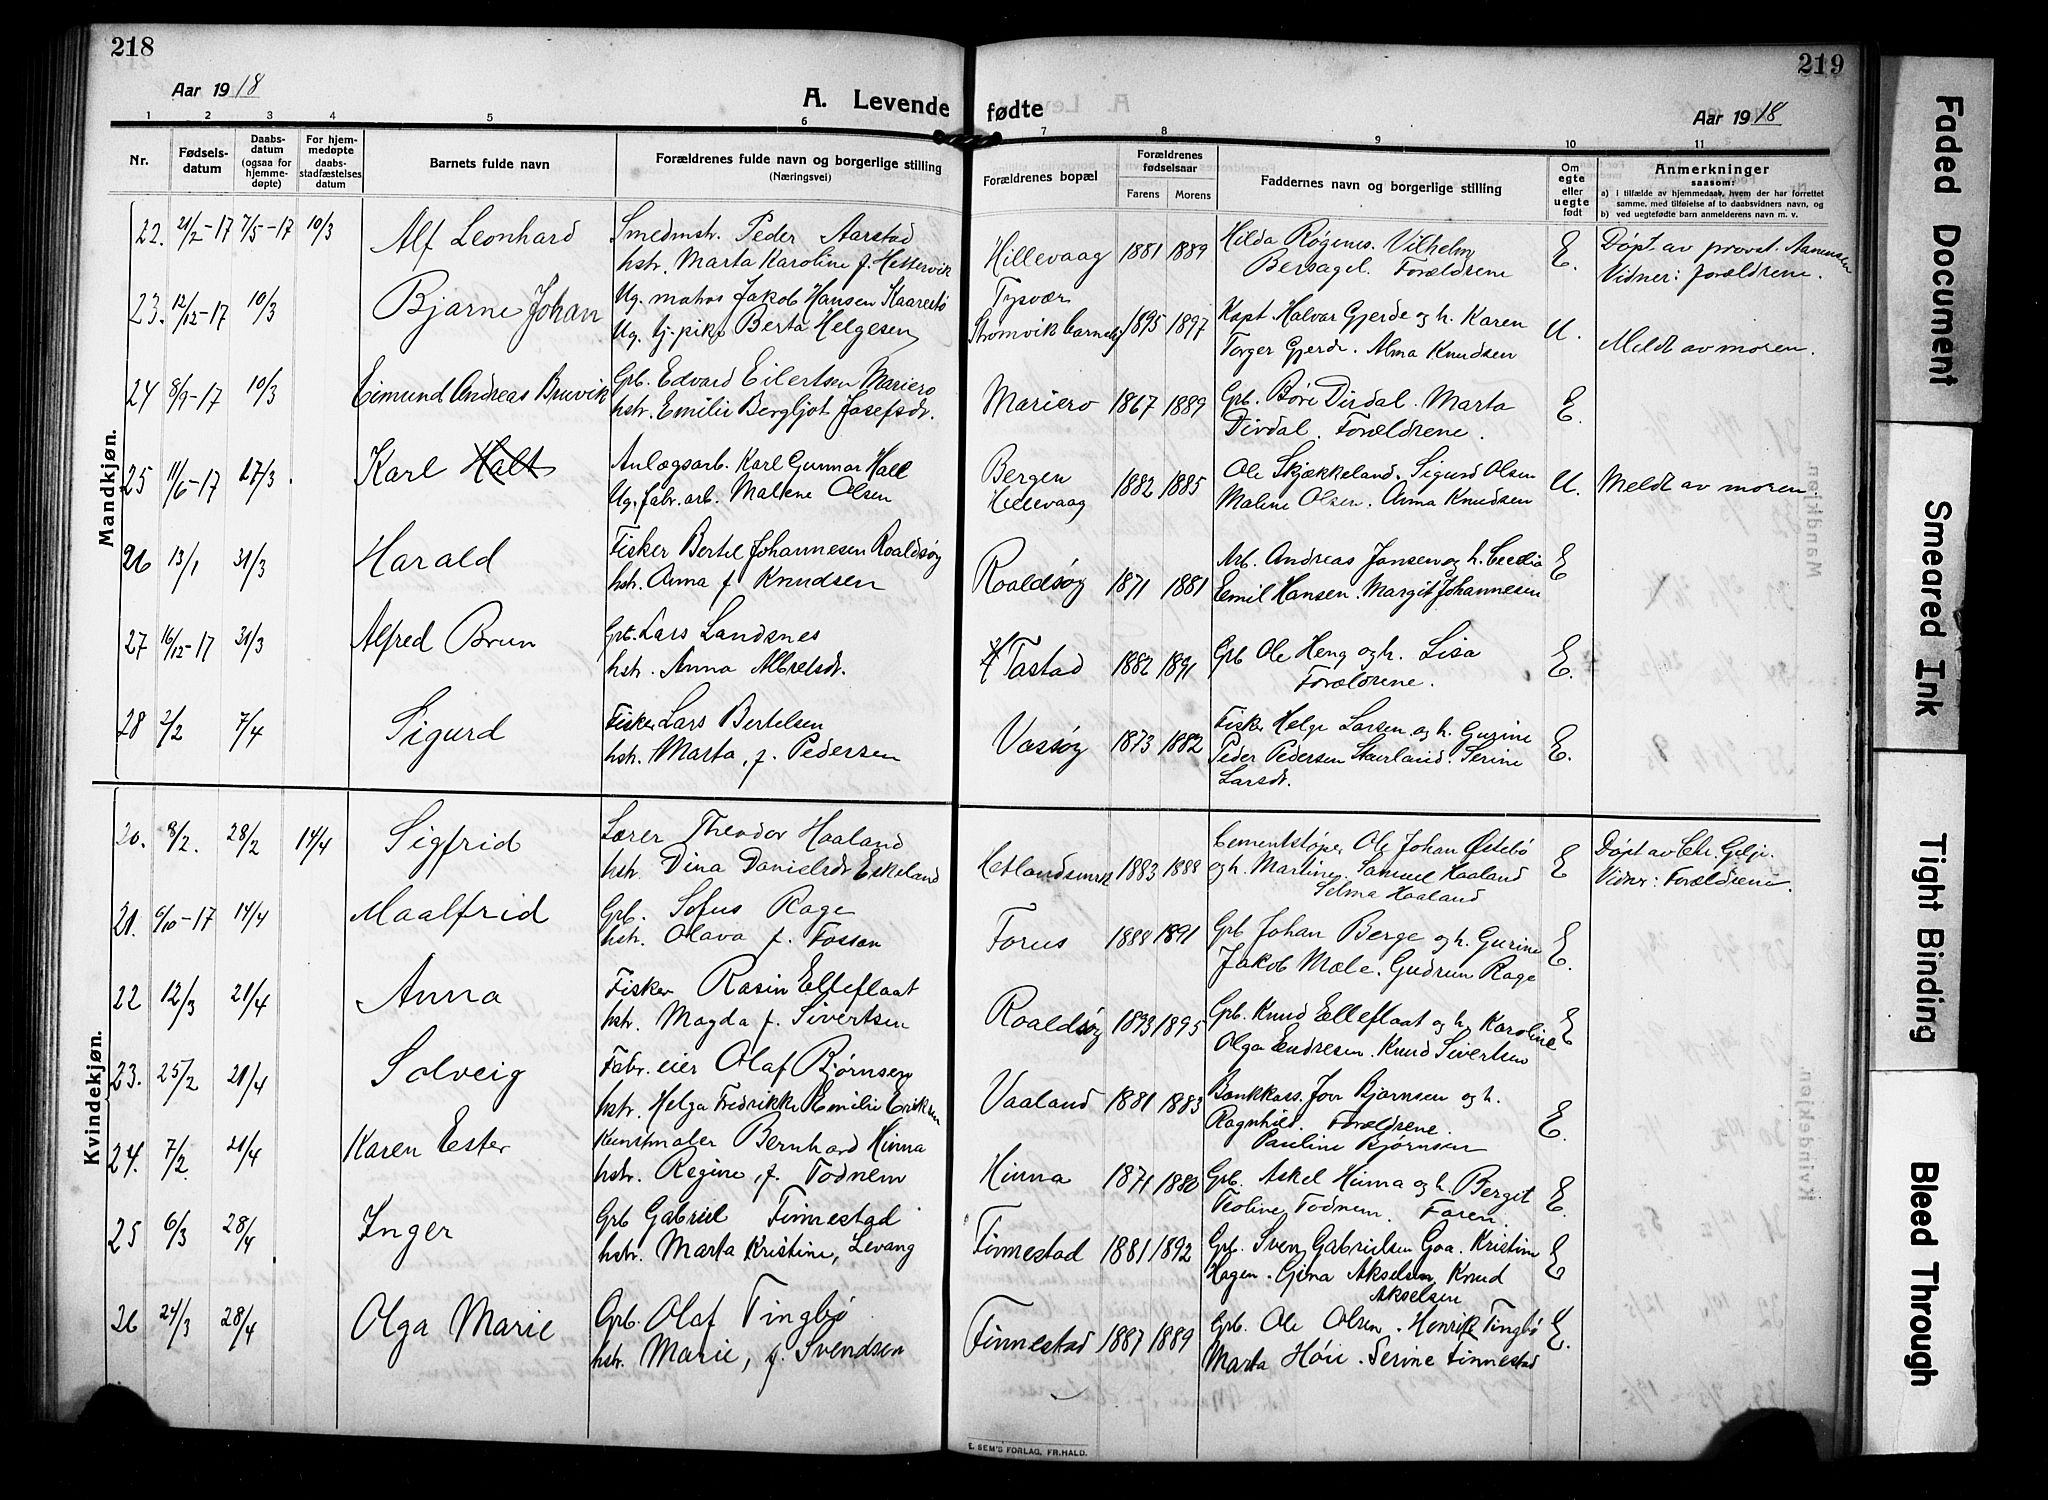 218
219
Aar 1918
A. Levende fødte
Aar 1918
1 2 3 4 5 6 7 8 9 10 11
Nr.
Fødsels-
datum
Daabs-
datum
(ogsaa for
hjemme-
døpte)
For hjem-
medøpte
daabs-
stadfæstelses
datum
Barnets fulde navn
Forældrenes fulde navn og borgerlige stilling
(Næringsvei)
Forældrenes bopæl
Forældrenes
fødselsaar
Farens Morens
Faddernes navn og borgerlige stilling
Om
egte
eller
uegte
født
Anmerkninger
saasom:
a) i tilfælde av hjemmedaab, hvem der har forrettet
samme, med tilføielse af to daabsvidners navn, og
b) ved uegtefødte barn anmelderens navn m. v.
Mandkjøn.
22. 21/2-17 7/5-17 10/3 Alf Leonhard Smedmstr. Peder Aarstad Hillevaag 1881 1889 Hilda Røgenes. Vilhelm E. Døpt av provst Aanensen
hstr. Marta Karoline f. Hettervik Bersagel. Forældrene Vidner: forældrene.
23. 12/12-17 10/3 Bjarne Johan Ug. matros Jakob Hansen Kaarestø Tysvær 1895 1897 Kapt Halvar Gjerde og h. Karen U. Meldt av moren.
Ug. tj. pike Berta Helgesen Strømvik Torger Gjerde. Alma Knudsen
24 8/9-17 10/3 Eimund Andreas Bruvik Grb. Edvard Eilertsen Mariero Mariero 1867 1889 Grb. Børe Dirdal. Marta E.
hstr. Emilie Bergljot Josefsdr. Dirdal. Forældrene.
25 11/6-17 27/3. Karl Halt Anlægsarb. Karl Gunnar Hall Bergen 1882 1885 Ole Skjækkeland. Sigurd Olsen U. Meldt av moren.
Ug. fabr. arb. Malene Olsen Hillevaag Malene Olsen. Anna Knudsen
26 13/1 31/3 Harald Fisker Bertel Johannesen Roaldsøy Roaldsøy 1871 1881 Arb. Andreas Jansen og h. Cecilia E
hstr. Anna f. Knudsen Emil Hansen. Margit Johannesen
27 16/12-17 31/3 Alfred Brun Grb. Lars Landsnes Tastad 1882 1891 Grb Ole Heng og h. Lisa E.
hstr. Anna Albretsdr. Forældrene.
28 2/2 7/4 Sigurd Fisker Lars Bertelsen Vassøy 1873 1882 Fisker Helge Larsen og h. Gurine E.
hstr. Marta, f. Pedersen Peder Pedersen Serine
Larsdr.
Kvindekjøn.
20. 8/2. 28/2 14/4 Sigfrid Lærer Theodor Haaland Hetlandsmrk 1883 1888 Cementstøper Ole Johan Østebø E Døpt av Chr. Gilje.
hstr. Dina Danielsdr Eskeland og h. Martine. Samuel Haaland Vidner: Forældrene.
Selma Haaland
21. 6/10-17 14/4 Maalfrid Grb. Sofus Rage Forus 1888 1891 Grb Johan Berge og h. Gurine E.
hstr. Olava f. Fossan Jakob Mæle. Gudrun Rage
22 12/3 21/4 Anna Fisker Rasin Elleflaat Roaldsøy 1893 1895 Grb. Knud Elleflaat og h. Karoline E
hstr. Magda f. Sivertsen Olga Endresen. Knud Sivertsen
23. 25/2 21/4 Solveig Fabr. eier Olaf Bjørnsen Vaaland 1881 1883 Bankkass. Jon Bjørnsen og h. E.
hstr. Helga Fredrikke Emilie Eriksen Ragnhild. Forældrene.
Pauline Bjørnsen
24. 7/2. 21/4 Karen Ester Kunstmaler Bernhard Hinna Hinna 1871 1880 Grb. Askel Hinna og h. Bergit E.
hstr. Regine, f. Todnem Teoline Todnem. Faren.
25 6/3 28/4 Inger Grb Gabriel Finnestad Finnestad 1881 1892 Grb. Sven Gabrielsen Goa. Kristine E
hstr. Marta Kristine, Levang Hagen. Gjina Akselsen, Knud
Akselsen
26 24/3 28/4 Olga Marie Grb. Olaf Tingbø Finnestad 1887 1889 Grb. Ole Olsen. Henrik Tingbø E.
hstr. Marie, f. Svendsen Marta Høie. Serine Finnestad
E. SEM'S FORLAG, FR.HALD.
Faded Document
Smeared Ink
Tight Binding
Bleed Through